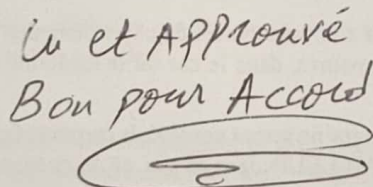 Lu et APProuvé
Bon pour Accord